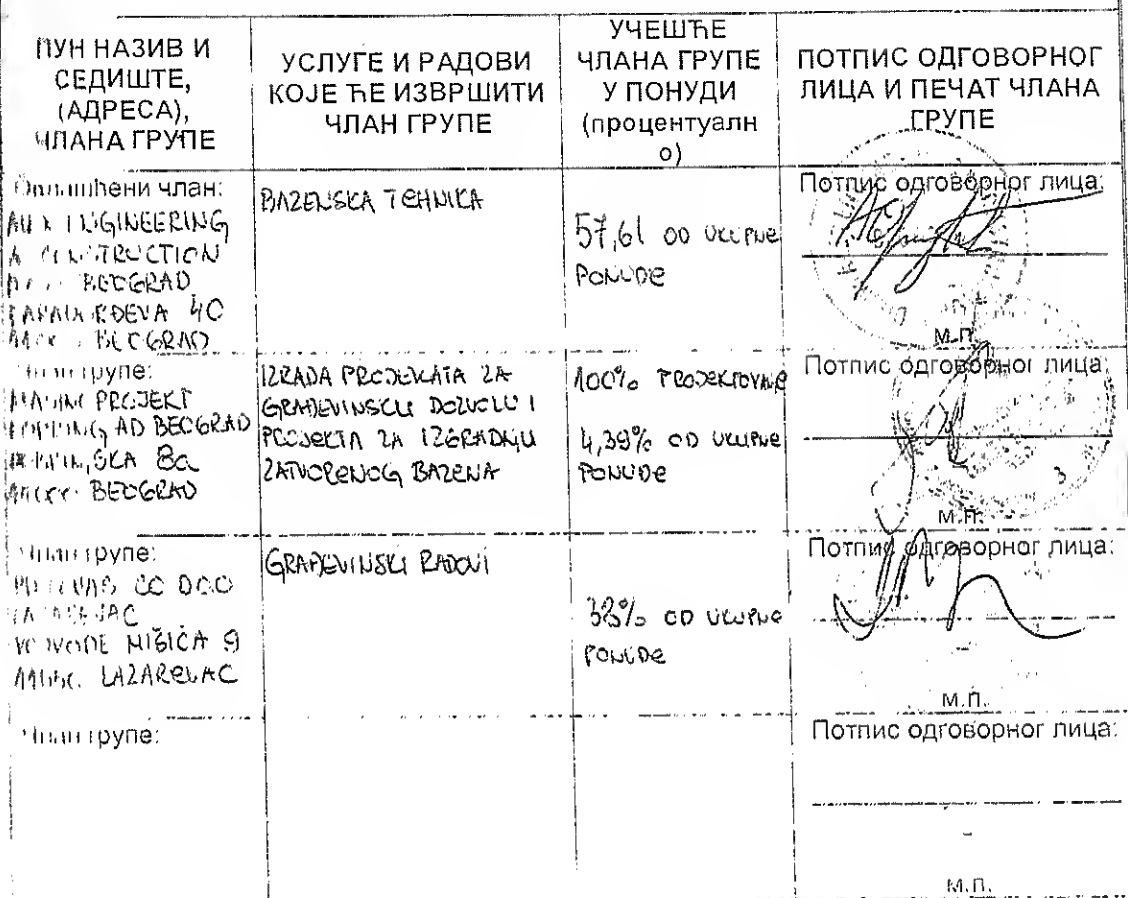 ПУН НАЗИВ И
СЕДИШТЕ,
(АДРЕСА),
ЧЛАНА ГРУПЕ
УСЛУГЕ И РАДОВИ
КОЈЕ ЋЕ ИЗВРШИТИ
ЧЛАН ГРУПЕ
УЧЕШЋЕ
ЧЛАНА ГРУПЕ
У ПОНУДИ
(процентуалн
о)
ПОТПИС ОДГОВОРНОГ
ЛИЦА И ПЕЧАТ ЧЛАНА
ГРУПЕ
члан:
INGINEERING
BEOGRAD
40
BEOGRAD
BAZENSKA TEHNIKA
57,61 OD UKUPNE
PONUDE
Потпис одговорног лица:
М.П.
групе:
PROJEKT
AD BEOGRAD
8a
BEOGRAD
IZRADA PROJEKATA ZA
GRAĐEVINSKU DOZVOLU I
PROJEKTA ZA IZGRADNJU
ZATVORENOG BAZENA
100% PROJEKTOVANJE
4,39% OD UKUPNE
PONUDE
Потпис одговорног лица:
3
М.П.
Члан групе:
CO DOO
MIŠIĆA 9
LAZAREVAC
GRAĐEVINSKI RADOVI
38% OD UKUPNE
PONUDE
Потпис одговорног лица:
М.П.
Члан групе:
Потпис одговорног лица:
М.П.